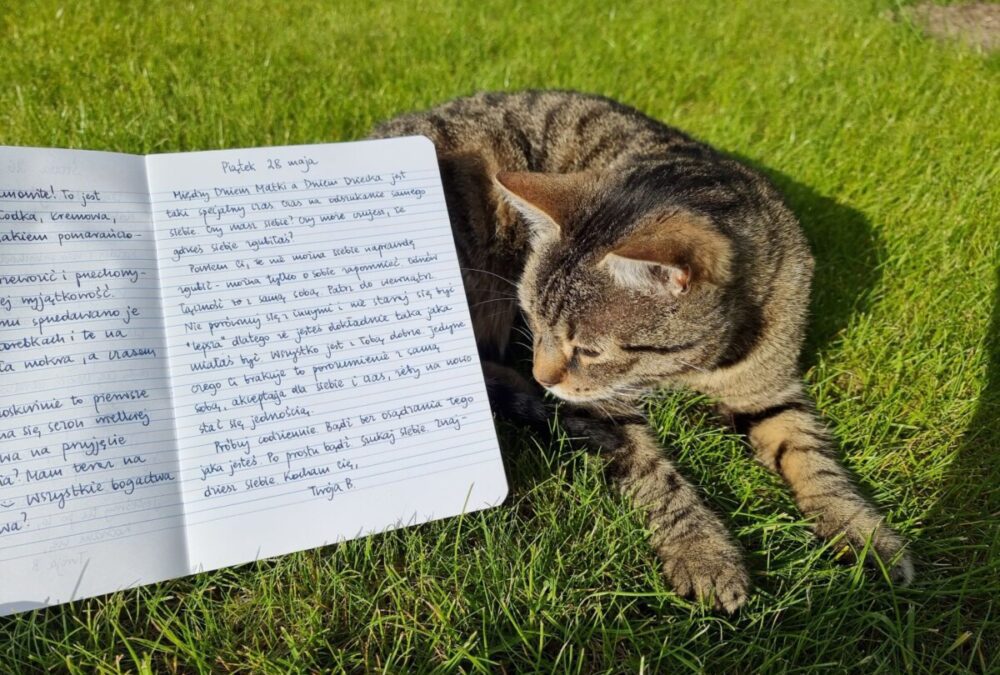 To jest
odka, kremowa,
akiem pomarańczo-
i
ej wyjątkowość.
mu sprzedawano je
orebkach i te na
ta mokra, a czasem
oskwinie to pierwsze
na się sezon wielkiej
wa na przyjęcie
ia? Mam teraz na
Wszystkie bogactwa
wa?
Piątek 28 maja
Między Dniem Matki a Dniem Dziecka jest
taki specjalny czas. Czas na odszukanie samego
siebie. Czy masz siebie? Czy może czujesz, że
gdzieś siebie zgubiłaś?
Powiem Ci, że nie można siebie naprawdę
zgubić - można tylko o sobie zapomnieć. Odnów
łączność z samą sobą. Patrz do wewnątrz.
Nie porównuj się z innymi i nie staraj się być
"lepsza" dlatego że jesteś dokładnie taka jaka
miałaś być. Wszystko jest z Tobą dobrze. Jedyne
czego Ci brakuje to porozumienie z samą
sobą, akceptacja dla siebie i czas, żeby na nowo
stać się jednością.
Próbuj codziennie. Bądź bez osądzania tego
jaka jesteś. Po prostu bądź. Szukaj siebie. Znaj-
dziesz siebie. Kocham Cię,
Twoja B.